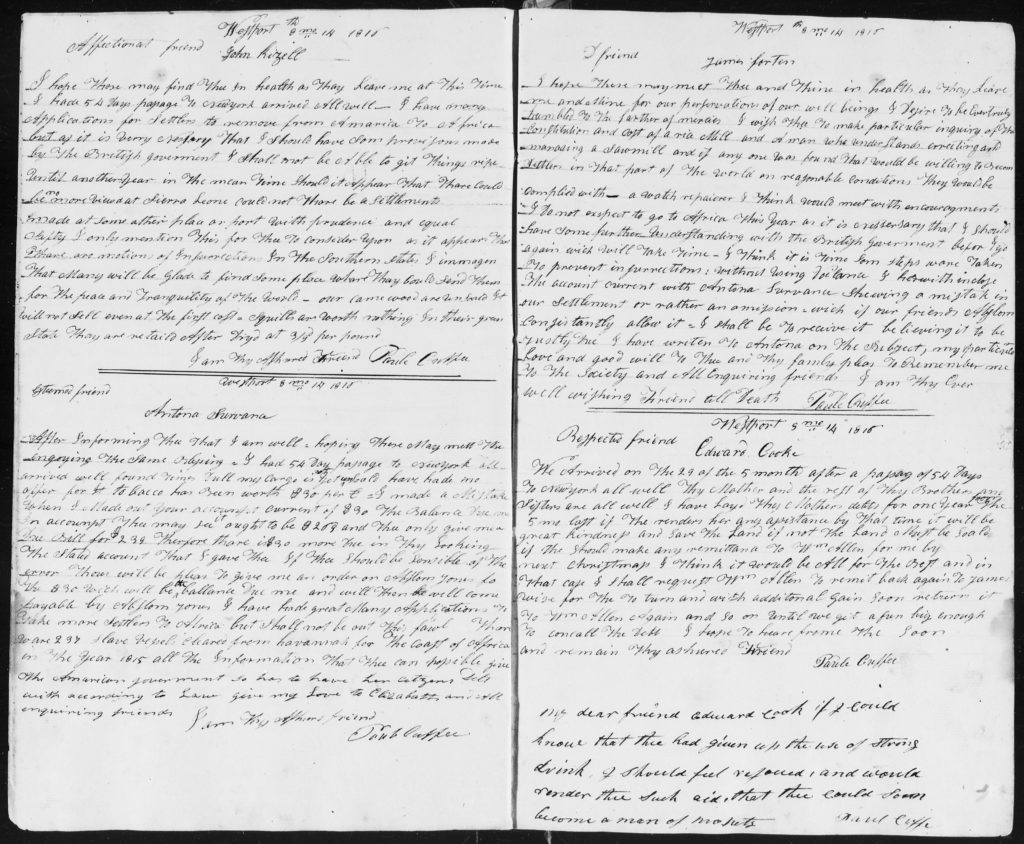 Westport 8th mo 14 1816
Affectionat friend John Kizell
I hope These may find Thee In health as They Leave me at This Time
I had 54 Days pasage To Newyork arrived All well I have many
Applications for Settlers to remove from Amarica To Africa
but as it is Very Nessary That I Should have Som provisions made
by The British goverment I Shall not be Able to git Things ripe
Until another Year in The mean Time Should it Appear That Thare Could
be no more View at Sierra Leone Could not Thare be a Settlements
made at Some other place or port with prudence and equal
Safty I only mention This for Thee To Consider Upon as it appears That
Thare are motions of Insurrections In The Southern States I immagen
That Many will be Glade to find Some place whare They Could Send Them
for The peace and Tranquility of The World our camewood are Unsold Yet
will not Sell even at The first cost Squills are worth nothing In their green
State They are retaild After Dry'd at 3/ per pound
I am Thy Ashured Friend Paule Cuffee
Westport 8 mo 14 1816
Esteemed friend
Antona Survana
After Informing Thee That I am well hoping These May meet Thee
Injoying The Same Blesing I had 54 Day pasage to Newyork all
arrived well found Times Dull my cargo is Yet unsold have had no
offer for It tobacco has Been worth $30 per C I made a Mistake
When I Made out Your accounpt current of $30 The Balance Due me
In accounpt Thee may See ought to be $268 and Thee only give me a
Due Bill for $238 Therfore thare is $30 more Due in Thy Looking
The Stated account That I gave Thee If Thee Should be Sensible of The
error Thous will be pleas To give me an order on Absom Jones for
The $30 wich will be the ballance Due me and will Then be well come
payable by Absom Jones I have had great Many Applications To
Take more Settlers To Africa but I Shall not be out This fawl Thare
ware 237 Slave Vesels cleared from havannah for The Coast of Africa
in The Year 1815 all The Information That Thee can posible give
The Amarican goverment So has to have her citizens Delt
with according to Law give my Love to Elizabath and All
enquiring friends
I am Thy Ashured friend
Paule Cuffee
Westport 8th mo 14 1816
friend James forten
I hope These may meet Thee and Thine in health as They Leave
me and mine for our preservation of our well beings I Desire To be Ever truly
humble To The farther of mercies I wish Thee To make particular enquiry of The
construction and cost of a rice Mill and A man who understands errecting and
manading a Sawmill and if any one was found That would be willing to become
Settlers in That part of The World on reasonable conditions They would be
complied with a watch repairer I Think would meet with encouragments
I Do not expect to go to Africa This Year as it is nessesary that I Should
have Some further Understanding with the British Goverment befor I go
again wich will Take Time I Think it is Time Som Steps ware Taken
To prevent insurrections without Using I herwith inclose
The acount current with Antona Survance Shewing a mistak in
our Settlement or rather an omission wich if our friends Absom
Consistantly allow it I shall be To receive it believing it to be
Justly Due I have writen To Antona on The Subject, my particular
Love and good will To Thee and Thy family pleas To Remember me
To The Society and All Enquiring friends I am Thy Ever
well wishing Friend till Death Paule Cuffee
Westport 8 mo 14 1816
Respected friend
Edward Cooke
We Arrived on The 29 of The 5 month after a pasag of 54 Days
To Newyork all well Thy Mother and the rest of Thy Brothers and
Sisters are all well I have bayd Thy Mothers debts for one Year The
5 mo last if Thee renders her any asistance by That time it will be
great kindness and Save The Land if not The Land Must be Soald
if The Should make any remittans To Wm Allen for me by
next Christmas I Think it would be All for The best and in
That case I Shall request Wm Allen To remit back again To James
Wise for The To turn and with additional Gain Soon return it
To Wm Allen Again and So on Until we get a fun big enough
To concall The Debt I hope To heare frome The Soon
and remain Thy ashured Friend
Paule Cuffee
My dear friend Edward Cook if I could
know that thee had given up the use of strong
drink, I should feel rejoiced, and would
render thee such aid, that thee could soon
become a man of Paul Cuffe